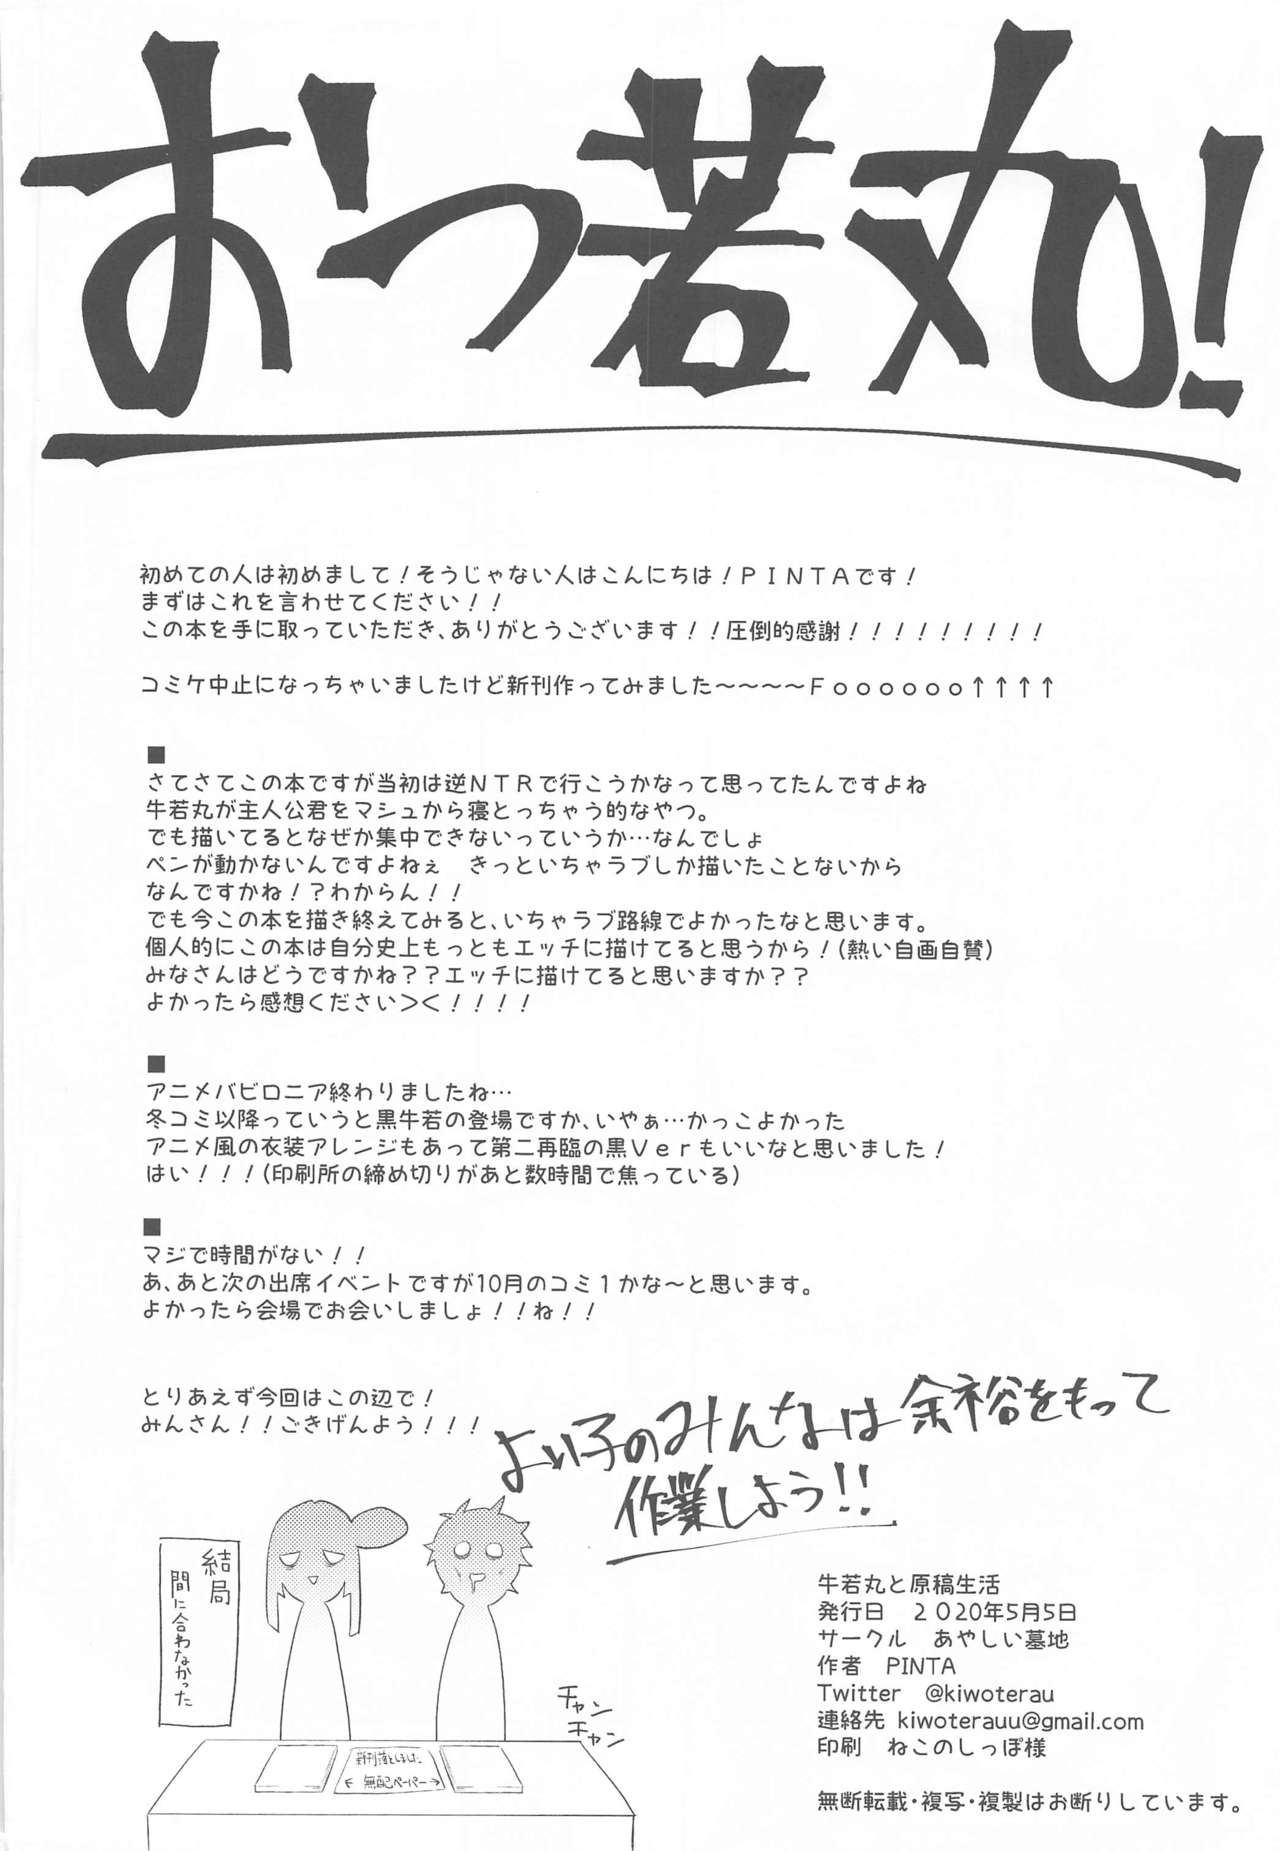 おつ若丸！
初めての人は初めまして！そうじゃない人はこんにちは！ＰＩＮＴＡです！
まずはこれを言わせてください！！
この本を手に取っていただき、ありがとうございます！！圧倒的感謝！！！！！！！！！
コミケ中止になっちゃいましたけど新刊作ってみました～～～～Ｆｏｏｏｏｏｏ↑↑↑↑
■
さてさてこの本ですが当初は逆ＮＴＲで行こうかなって思ってたんですよね
牛若丸が主人公君をマシュから寝とっちゃう的なやつ。
でも描いてるとなぜか集中できないっていうか…なんでしょ
ペンが動かないんですよねぇ　きっといちゃラブしか描いたことないから
なんですかね！？わからん！！
でも今この本を描き終えてみると、いちゃラブ路線でよかったなと思います。
個人的にこの本は自分史上もっともエッチに描けてると思うから！(熱い自画自賛)
みなさんはどうですかね？？エッチに描けてると思いますか？？
よかったら感想ください＞＜！！！！
■
アニメバビロニア終わりましたね…
冬コミ以降っていうと黒牛若の登場ですか、いやぁ…かっこよかった
アニメ風の衣装アレンジもあって第二再臨の黒Ｖｅｒもいいなと思いました！
はい！！！(印刷所の締め切りがあと数時間で焦っている)
■
マジで時間がない！！
あ、あと次の出席イベントですが10月のコミ１かな～と思います。
よかったら会場でお会いしましょ！！ね！！
とりあえず今回はこの辺で！
みんさん！！ごきげんよう！！！
よい子のみんなは余裕をもって
作業しよう!!
結局
間に合わなかった
チャン
チャン
新刊落としました
← 無配ペーパー →
牛若丸と原稿生活
発行日　２０20年5月5日
サークル　あやしい墓地
作者　PINTA
Twitter　@kiwoterau
連絡先 kiwoterauu@gmail.com
印刷　ねこのしっぽ様
無断転載・複写・複製はお断りしています。